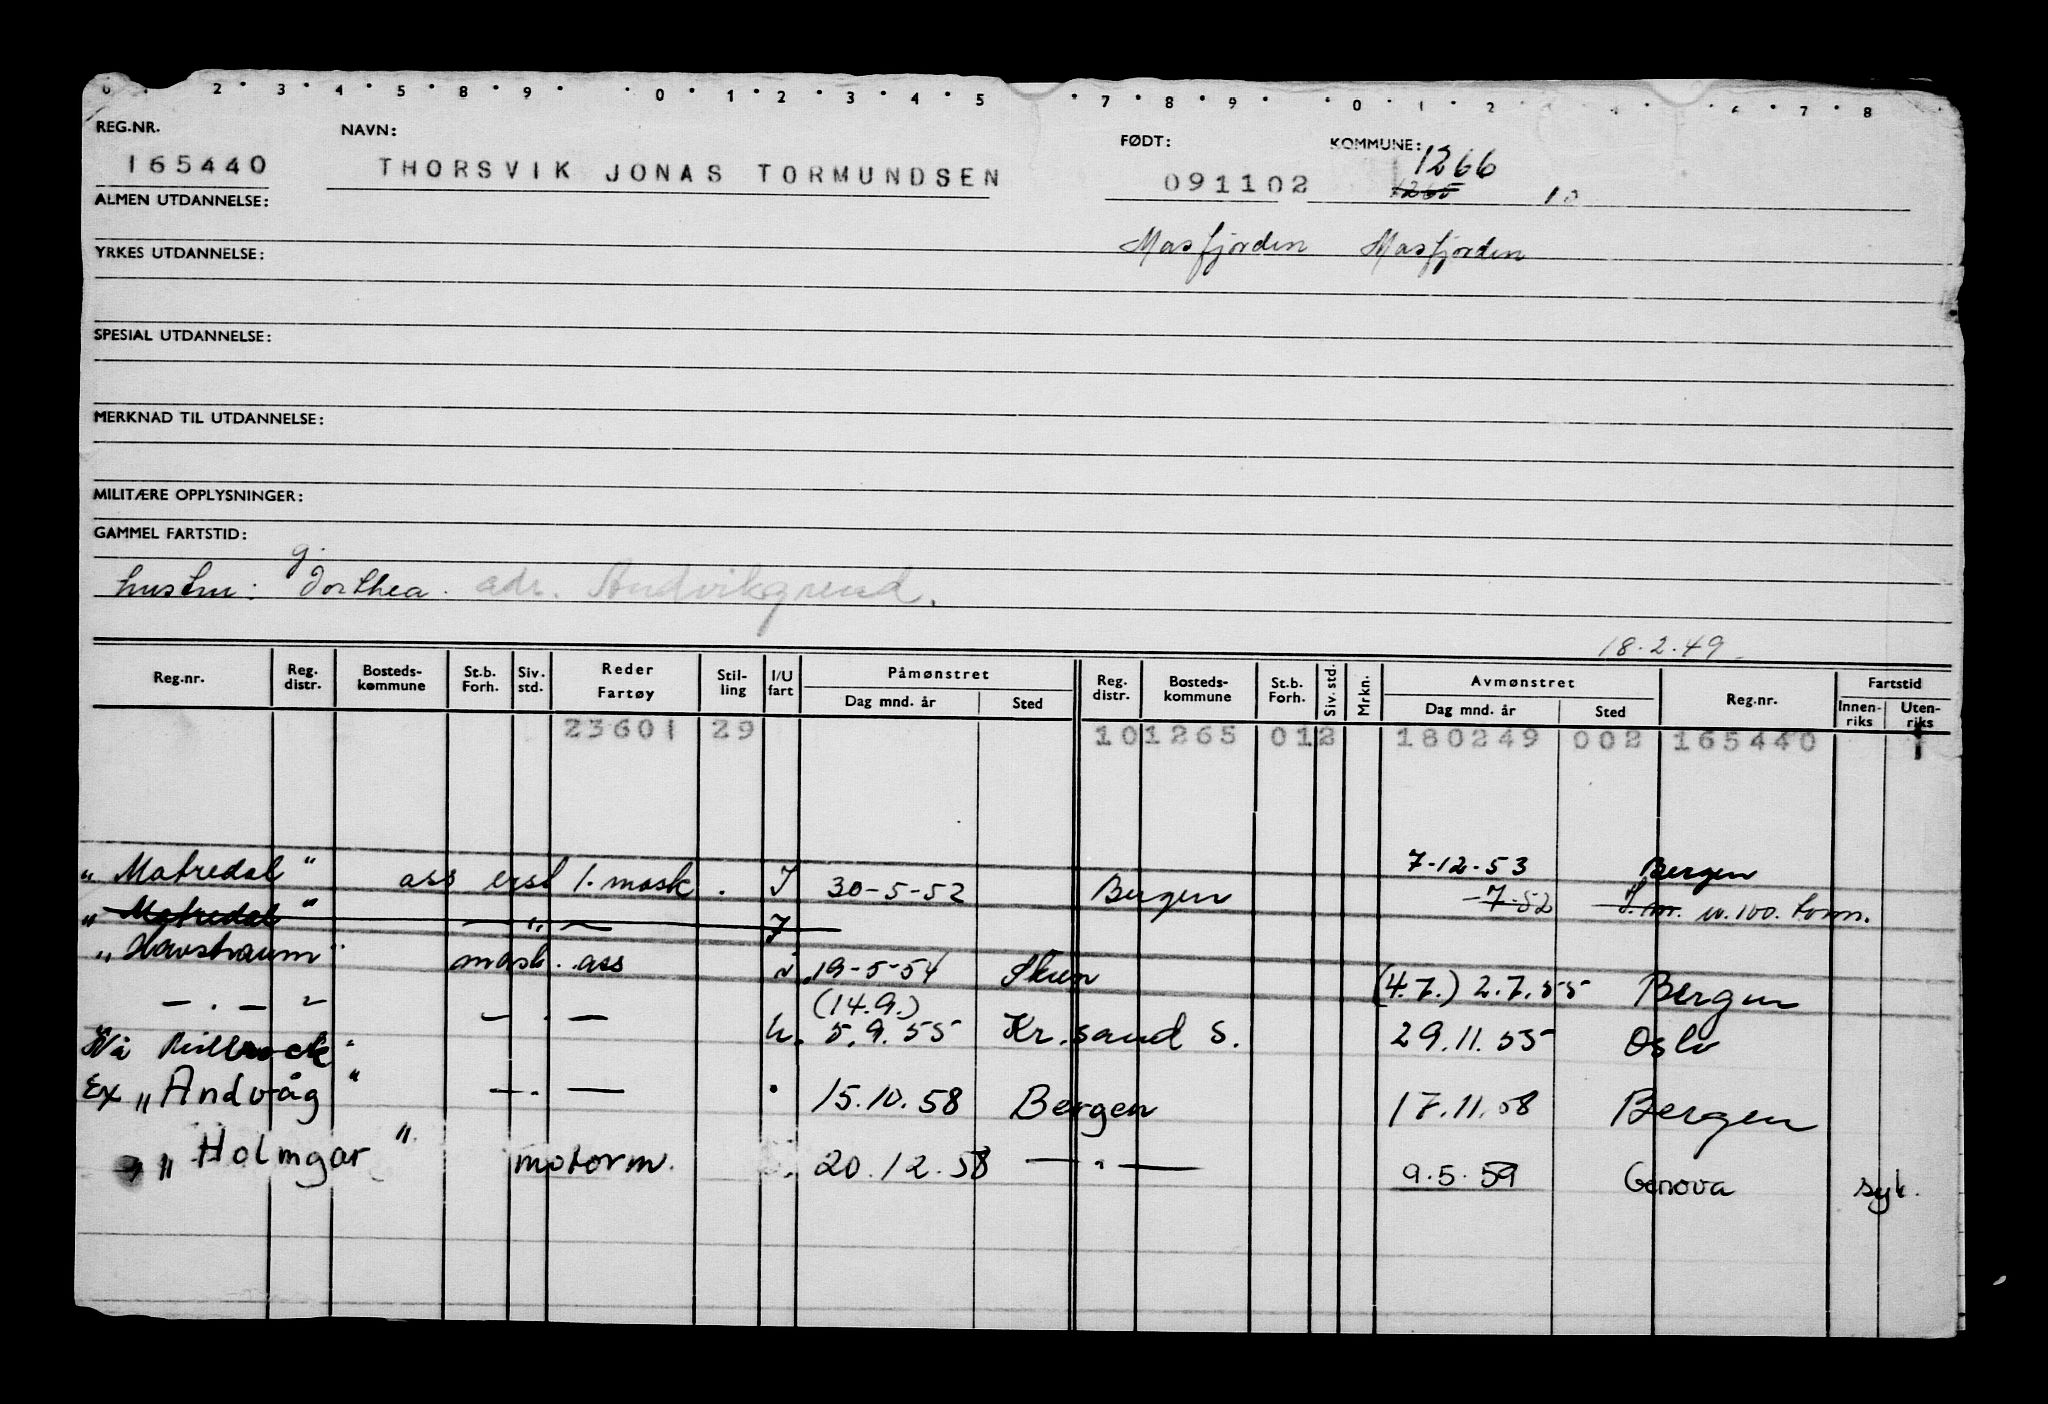 2 · 3 · 4 · 5 · 8 · 9 · · 0 · 1 · 2 · 3 · 4 · 5 · 7 · 8 · 9 · · 0 · 1 · 2 · 6 · 7 · 8
REG.NR. NAVN: FØDT: KOMMUNE: 1266
165440 THORSVIK JONAS TORMUNDSEN 091102 1265 10
ALMEN UTDANNELSE:
YRKES UTDANNELSE: Masfjorden Masfjorden
SPESIAL UTDANNELSE:
MERKNAD TIL UTDANNELSE:
MILITÆRE OPPLYSNINGER:
GAMMEL FARTSTID:
g.
hustru: Dorthea. adr. Andvikgrend.
18.2.49
Reg.nr. Reg. distr. Bosteds-kommune St.b. Forh. Siv. std. Reder Fartøy Stil-ling I/U fart Påmønstret Dag mnd. år Sted Reg. distr. Bosteds-kommune St.b. Forh. Siv. std. Mrkn. Avmønstret Dag mnd. år Sted Reg.nr. Fartstid Innen-riks Uten-riks
23601 29 101265 012 180249 002 165440
7-12-53 Bergen
"Matredal" ass erst 1. mask. I 30-5-52 Bergen -7-52 u. 100. tonn.
"Matredal" — " — I
"Havstraum" mask. ass i 19-5-54 Skien (4.7.) 2.7.55 Bergen
— . — " — . — (14.9.) u. 5.9.55 Kr.sand S. 29.11.55 Oslo
Nå
Ex "Andvåg" — . — 15.10.58 Bergen 17.11.58 Bergen
"Holmgar" motorm. 20.12.58 — " — 9.5.59 Genova syk.